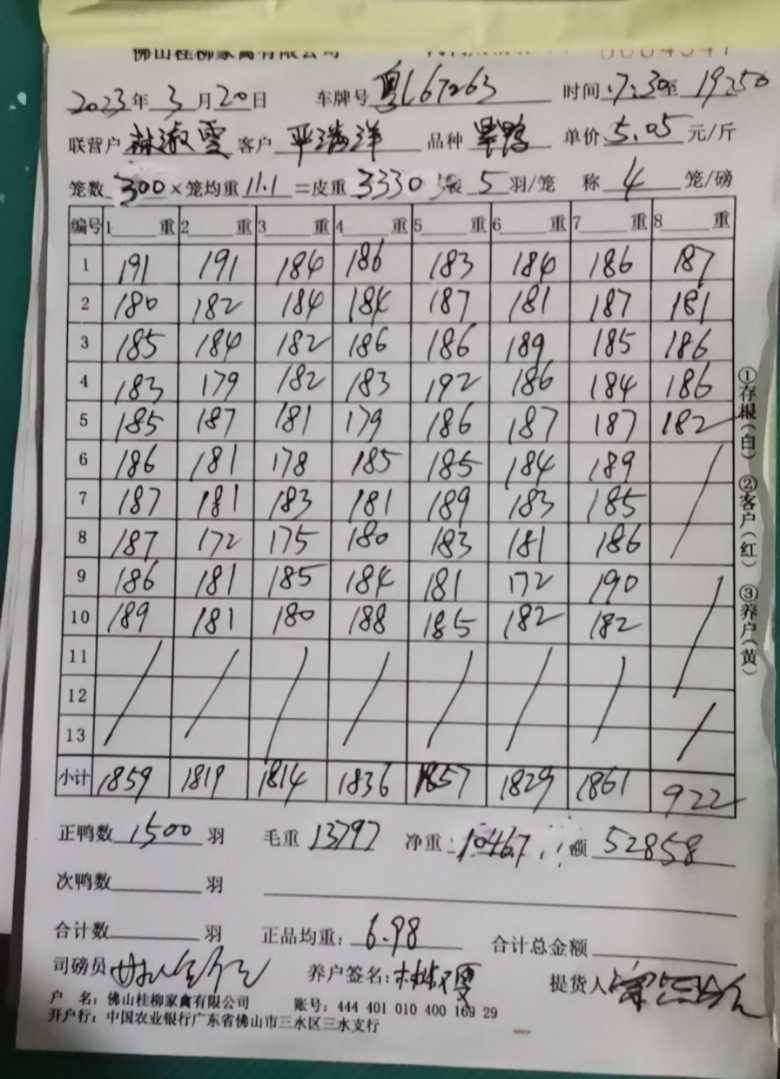 佛山桂柳家禽有限公司
2023年 3月20日 车牌号 粤L67263 时间 17:30至 19:50
联营户 林淑雯 客户 平满洋 品种 单价 5.05 元/斤
笼数 300 ×笼均重 11.1 =皮重 3330 装 5 羽/笼 称 4 笼/磅
编号 1 重 2 重 3 重 4 重 5 重 6 重 7 重 8 重
1 191 191 184 186 183 184 186 187
2 180 182 184 184 187 181 187 181
3 185 184 182 186 186 189 185 186
4 183 179 182 183 192 186 184 186
5 185 187 181 179 186 187 187 182
6 186 181 178 185 185 184 189
7 187 181 183 181 189 183 185
8 187 172 175 180 183 181 186
9 186 181 185 184 181 172 190
10 189 181 180 188 185 182 182
11
12
13
小计 1859 1819 1814 1836 1857 1829 1861 922
①存根(白) ②客户(红) ③养户(黄)
正鸭数 1500 羽 毛重 13797 净重 10467 额 52858
次鸭数 羽
合计数 羽 正品均重: 6.98 合计总金额
司磅员 养户签名: 提货人
户 名: 佛山桂柳家禽有限公司 账号: 444 401 010 400 169 29
开户行: 中国农业银行广东省佛山市三水区三水支行